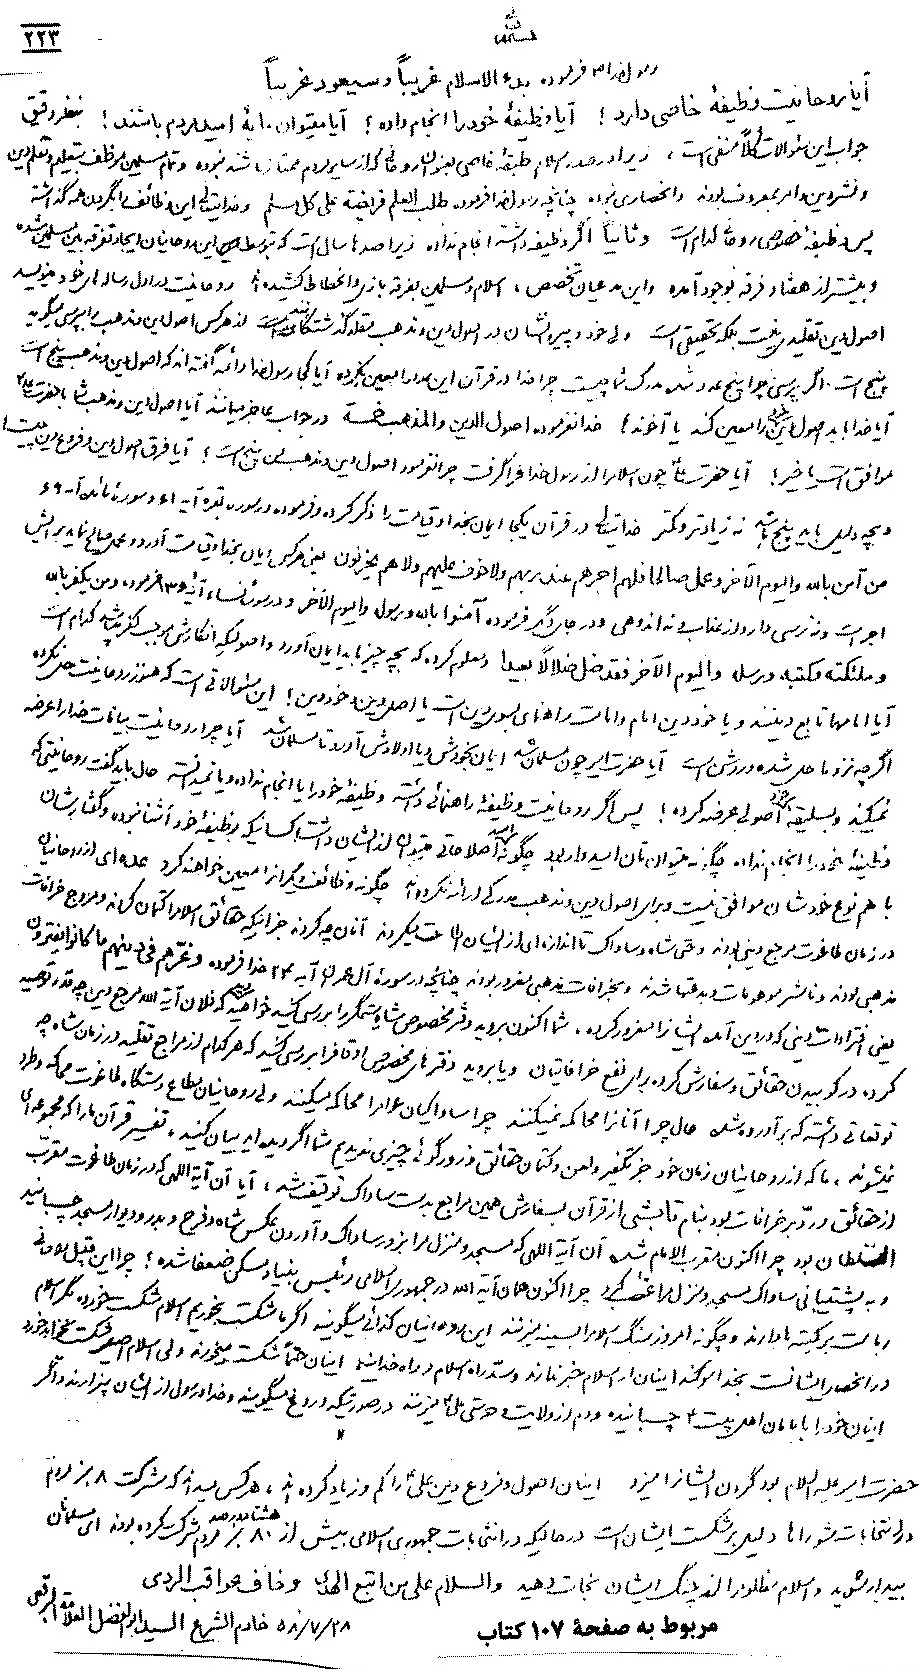 ۲۲۳
بسمه تعالی
رسول خدا ص فرموده بدء الاسلام غریباً و سیعود غریباً
آیا روحانیت وظیفهٔ خاصی دارد؟ آیا وظیفهٔ خود را انجام داده؟ آیا میتوان مایهٔ امید مردم باشند؟ بنظر دقیق
جواب این سئوالات کلاً منفی است، زیرا در صدر اسلام طبقهٔ خاصی بعنوان روحانی که از سایر مردم ممتاز باشد نبوده و تمام مسلمین موظف بتعلیم و تعلم دین
و نشر دین و امر بمعروف بودند و انحصاری نبوده چنانچه رسول خدا فرموده طلب العلم فریضة علی کل مسلم و خدایتعالی این وظائف را بگردن همه گذاشته
پس وظیفهٔ خصوصی روحانی کدام است و ثانیاً اگر وظیفه داشته انجام نداده زیرا صدها سال است که توسط این روحانیان ایجاد تفرقه بین مسلمین شده
و بیشتر از هفتاد فرقه بوجود آمده و این مدعیان تخصص، اسلام و مسلمین را بفرقه بازی و انحطاط کشیده‌اند روحانیت در اول رساله‌های خود مینویسد
اصول دین تقلیدی نیست بلکه تحقیقی است ولی خود و پیروانشان در اصول دین و مذهب مقلد گذشتگانند از هر کس اصول دین و مذهب را بپرسی میگوید
پنج است. اگر بپرسی چرا پنج عدد شد مدرک شما چیست چرا خدا در قرآن این عدد را معین نکرده آیا کجا رسول خدا و ائمه گفته‌اند که اصول دین و مذهب پنج است
آیا خدا باید اصول دین خود را معین کند یا آخوند؟ خدا نفرموده اصول الدین و المذهب خمسة در جواب عاجز میمانند آیا اصول دین و مذهب شما با حضرت علی ع
موافق است یا خیر؟ آیا حضرت علی چون اسلام را از رسول خدا فرا گرفت چرا نفرمود اصول دین و مذهب من پنج است؟ آیا فرق اصول دین و فروع دین چیست
و بچه دلیل باید پنج باشد نه زیادتر و کمتر خدایتعالی در قرآن یکجا ایمان بخدا و قیامت را ذکر کرده و فرموده در سوره بقره آیه ۶۱ و سورهٔ مائده آیه ۶۹
من آمن بالله و الیوم الآخر و عمل صالحا فلهم اجرهم عند ربهم ولا خوف علیهم ولا هم یحزنون یعنی هر کس ایمان بخدا و قیامت آورد و عمل صالح نماید برایش
اجر است و نه ترسی دارد از عذاب و نه اندوهی و در جای دیگر فرموده آمنوا بالله و رسوله و الیوم الآخر و در سورهٔ نساء آیهٔ ۱۳۶ فرموده و من یکفر بالله
و ملئکته و کتبه و رسله و الیوم الآخر فقد ضل ضلالاً بعیدا و معلوم کرده که بچه چیز باید ایمان آورد و اصولیکه انکارش موجب کفر باشد کدام است
آیا امامها تابع دینند و یا خود دین امام و امامت راهنمای بسوی دین است یا اصل دین و خود دین؟ این سئوالاتی است که هنوز روحانیت حل نکرده
اگرچه نزد ما حل شده و روشن است آیا حضرت امیر چون مسلمان شد ایمان بخودش و یا اولادش آورد تا مسلمان شد آیا چرا روحانیت بیانات خدا را عرضه
نمیکند و بسلیقهٔ خود اصولی عرضه کرده؟ پس اگر روحانیت وظیفهٔ راهنمائی داشته وظیفهٔ خود را یا انجام نداده و یا نمیدانسته حال باید گفت روحانیتی که
وظیفهٔ خود را انجام نداده چگونه میتوان بآن امیدوار بود چگونه امید اصلاحاتی میتوان از ایشان داشت کسانیکه بوظیفهٔ خود آشنا نبوده و گفتارشان
با هم نوع خودشان موافق نیست و برای اصول دین و مذهب مدرکی ارائه نکرده‌اند چگونه وظائف دیگران را معین خواهند کرد عده‌ای از روحانیان
در زمان طاغوت مرجع دینی بودند و حتی شاه و ساواک تا اندازه‌ای از ایشان اطاعت میکردند آنان چه کردند جز اینکه حقائق اسلام را کتمان کرده و مروج خرافات
مذهبی بوده و ناشر موهومات و بدعتها شدند و بخرافات مذهبی مغرور بودند چنانچه در سورهٔ آل عمران آیه ۲۴ خدا فرموده و غرّهم فی دینهم ما کانوا یفترون
یعنی افتراءات دینی که در دین آمده ایشانرا مغرور کرده. شما اکنون بروید دفتر مخصوص شاه ستمگر را بررسی کنید خواهید دید که فلان آیة الله مرجع دین چه قدر توصیه
کرده در کوبیدن حقائق و سفارش کرده برای نفع خرافاتیان و یا بروید دفترهای مخصوص اوقاف را بررسی کنید که هر کدام از مراجع تقلید در زمان شاه چه
توقعاتی داشته که برآورده شده حال چرا آنانرا محاکمه نمیکنند چرا ساواکیان عوام را محاکمه میکنند ولی روحانیان مطاع دستگاه طاغوت محاکمه و طرد
نمیشوند، ما که از روحانیان زمان خود جز تکفیر و لعن و کتمان حقائق و زورگوئی چیزی ندیدیم شما اگر دیده‌اید بیان کنید. تفسیر قرآن ما را که مجموعه‌ای
از حقائق و ردّ بر خرافات بود بنام تابشی از قرآن بسفارش همین مراجع بدست ساواک توقیف شد، آیا آن آیة اللهی که در زمان طاغوت مقرّب
السلطان بود چرا اکنون مقرب الامام شده آن آیة اللهی که مسجد و منزل مرا بزور ساواک و آوردن عکس شاه و فرح و بدر و دیوار مسجد چسبانید
و به پشتیبانی ساواک مسجد و منزل مرا غصب کرد چرا اکنون همان آیة الله در جمهوری اسلامی رئیس بنیاد مسکن ضعفا شده؟ چرا این قبیل روحانی
ریاست بر کمیته‌ها دارند و چگونه امروز سنگ اسلام را بسینه میزنند این روحانیان کذائی میگویند اگر ما شکست بخوریم اسلام شکست خورده مگر اسلام
در انحصار ایشانست بخدا سوگند اینان از اسلام خبر ندارند و سدّ راه اسلام و راه خدایند اینان حتماً شکست میخورند ولی اسلام اصیل شکست نخواهد خورد
اینان خود را بامامان اهل بیت ع چسبانیده و دم از ولایت و دوستی علی ع میزنند در صورتیکه دروغ میگویند و خدا و رسول از ایشان بیزارند و اگر
حضرت امیر علیه السلام بود گردن ایشانرا میزد اینان اصول و فروع دین علی ع را کم و زیاد کرده‌اند، هر کس میداند که شرکت ۸٪ مردم
در انتخابات شوراها دلیل بر شکست ایشان است در حالیکه در انتخابات جمهوری اسلامی بیش از ۸۰٪ هشتاد درصد مردم شرکت کرده بودند ای مسلمانان
بیدار شوید و اسلام مظلوم را از چنگ ایشان نجات دهید والسلام علی من اتبع الهدی و خاف عواقب الردی
۵۸/۷/۲۸ خادم الشرع السید ابوالفضل العلامة البرقعی
مربوط به صفحهٔ ۱۰۷ کتاب